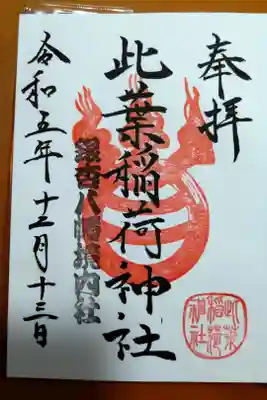 奉拝
此葉稲荷神社
銀杏八幡宮境内社
令和五年十二月十三日
此葉稲荷神社